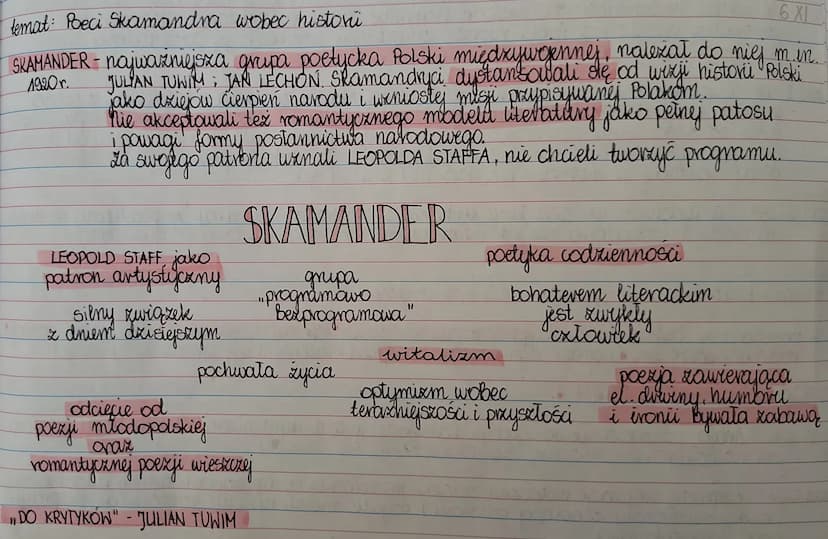 6 XI
temat: Poeci Skamandra wobec historii
SKAMANDER - najważniejsza grupa poetycka Polski międzywojennej, należał do niej m.in.
1920r. JULIAN TUWIM i JAN LECHOŃ. Skamandryci dystansowali się od wizji historii Polski
jako dziejów cierpień narodu i wzniosłej misji przypisywanej Polakom.
Nie akceptowali też romantycznego modelu literatury jako pełnej patosu
i powagi formy posłannictwa narodowego.
Za swojego patrona uznali LEOPOLDA STAFFA, nie chcieli tworzyć programu.
SKAMANDER
LEOPOLD STAFF jako
patron artystyczny
silny związek
z dniem dzisiejszym
grupa
„programowo
bezprogramowa"
poetyka codzienności
bohaterem literackim
jest zwykły
człowiek
witalizm
pochwała życia
optymizm wobec
teraźniejszości i przyszłości
poezja zawierająca
el. drwiny, humoru
i ironii bywała zabawą
odcięcie od
poezji młodopolskiej
oraz
romantycznej poezji wieszczej
„DO KRYTYKÓW" - JULIAN TUWIM